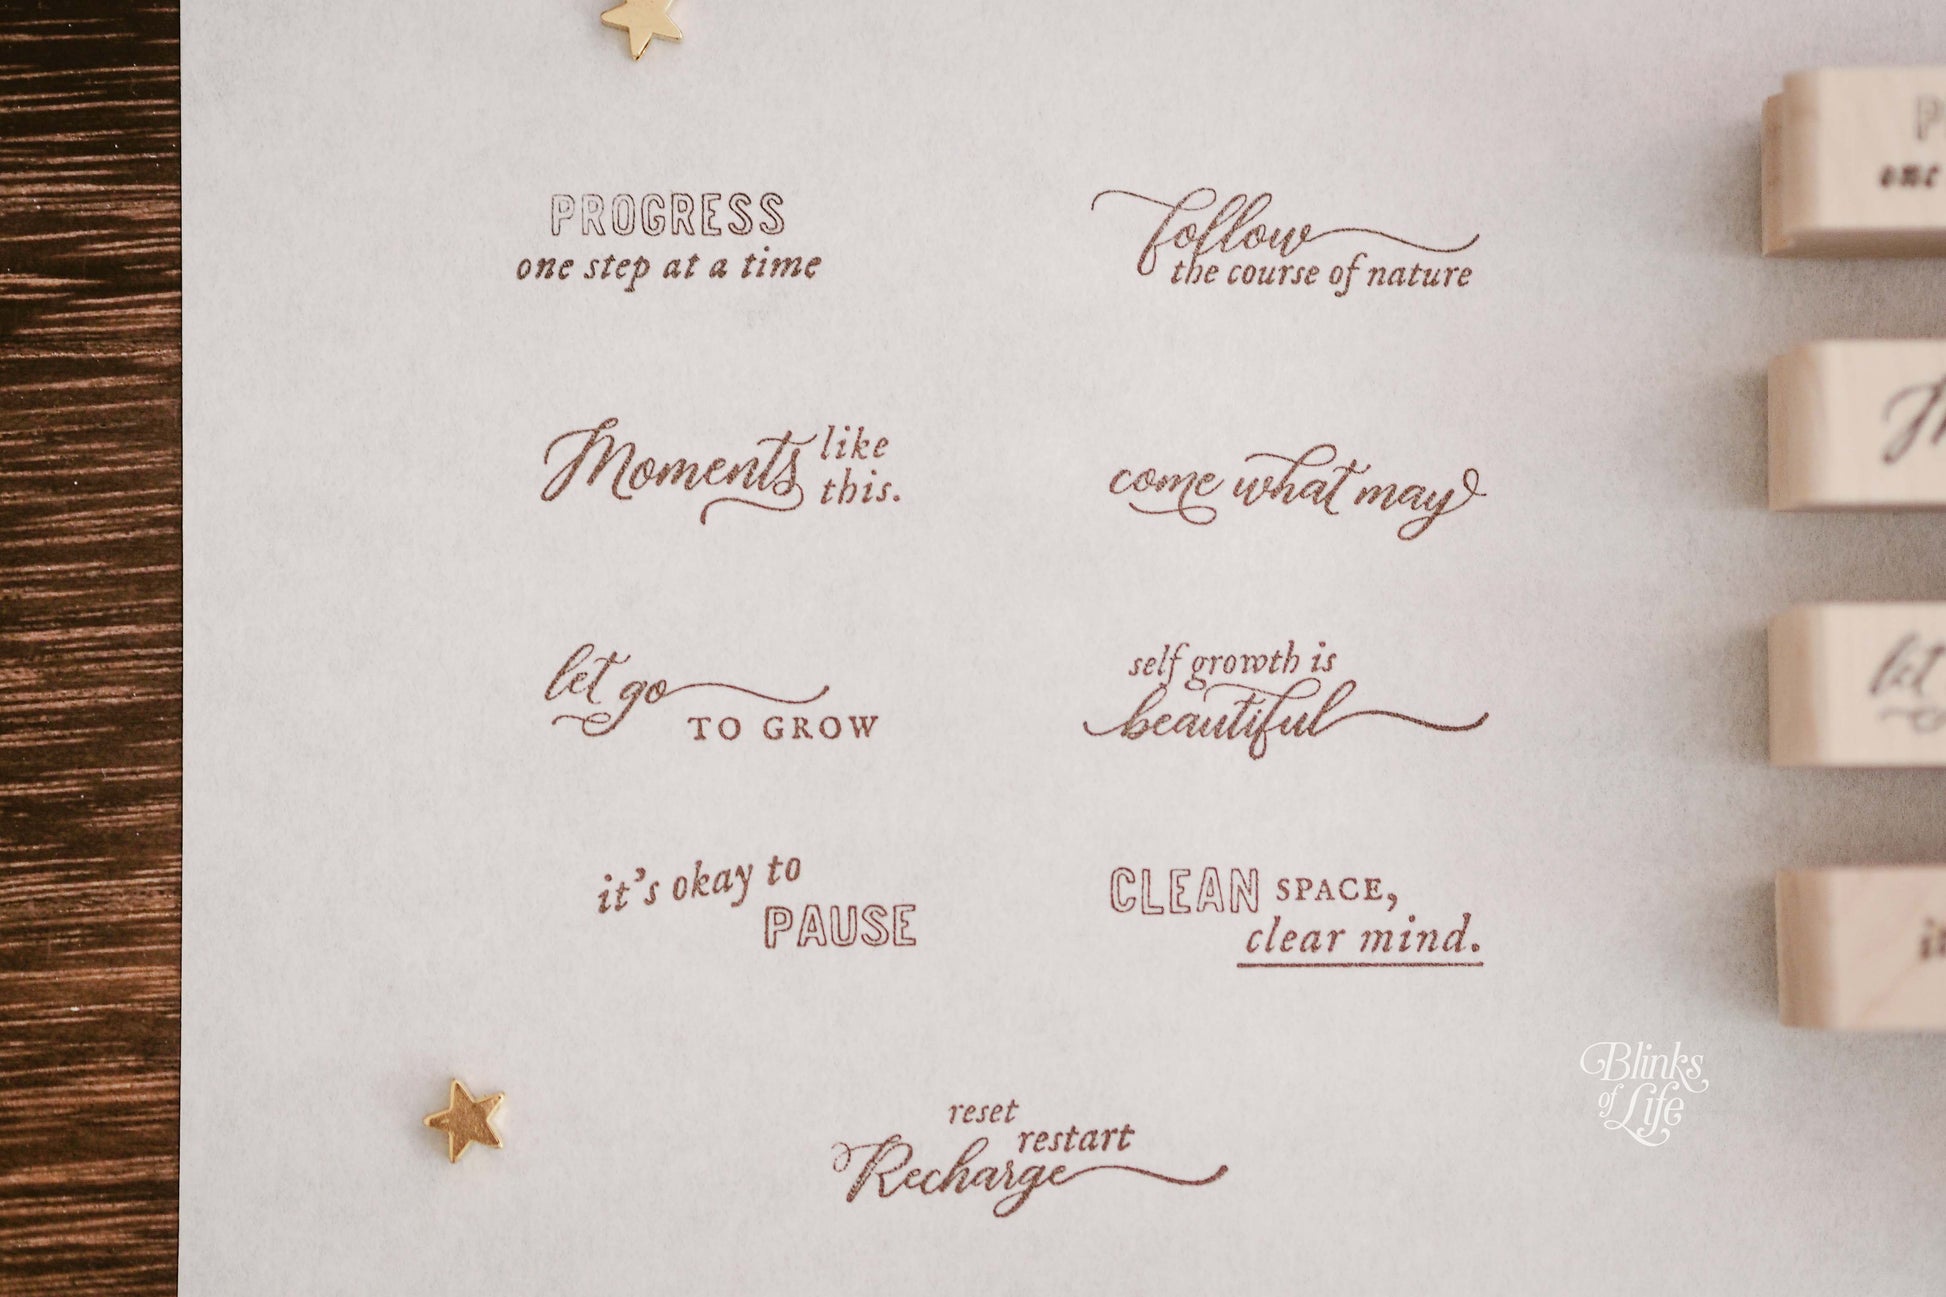 PROGRESS
one step at a time
follow
the course of nature
Moments like
this.
come what may
let go
TO GROW
self growth is
beautiful
it's okay to
PAUSE
CLEAN SPACE,
clear mind.
reset
restart
Recharge
one
let
Blinks
of Life